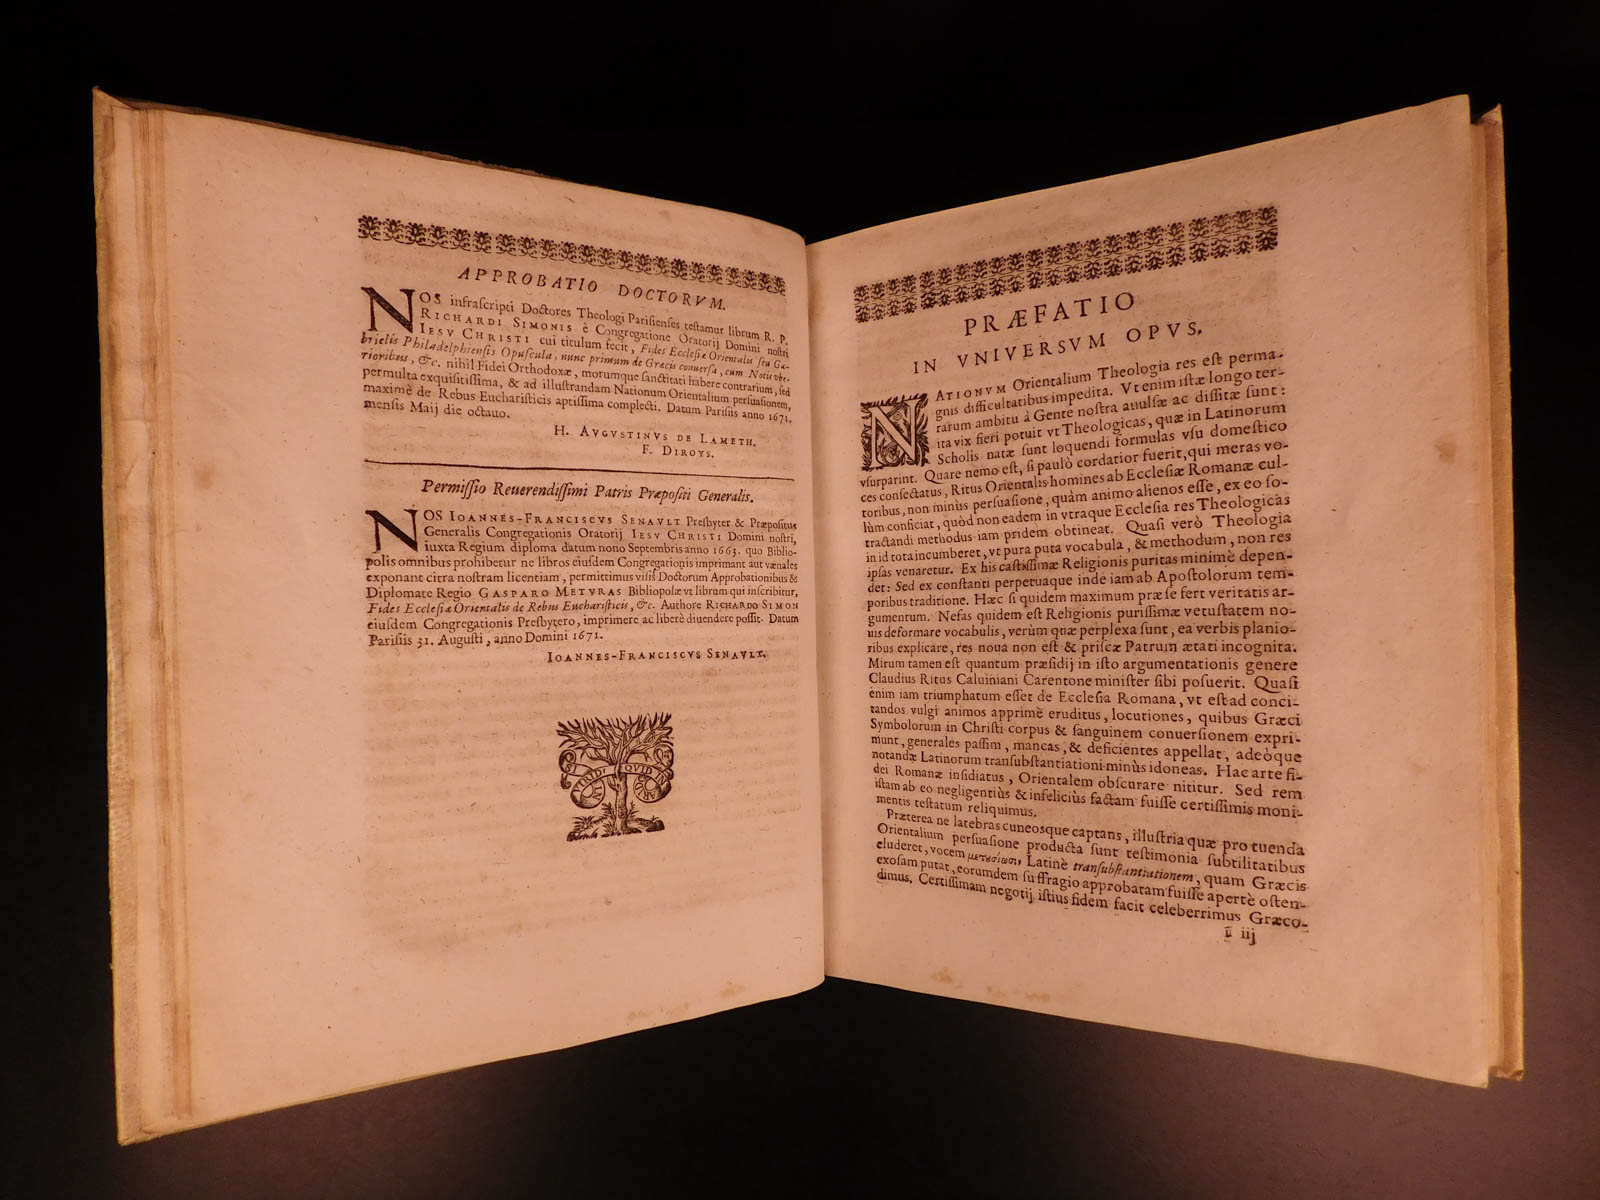 APPROBATIO DOCTORVM.
NOS infrascripti Doctores Theologi Parisienses testamur librum R. P.
RICHARDI SIMONIS è Congregatione Oratorij Domini nostri
IESV CHRISTI cui titulum fecit, Fides Ecclesiæ Orientalis seu Ga-
brielis Philadelphiensis Opuscula, nunc primum de Græcis conuersa, cum Notis vbe-
rioribus, &c. nihil Fidei Orthodoxæ, morumque sanctitati habere contrarium, sed
permulta exquisitissima, & ad illustrandam Nationum Orientalium persuasionem,
maximè de Rebus Eucharisticis aptissima complecti. Datum Parisiis anno 1671.
mensis Maij die octauo.
H. AVGVSTINVS DE LAMETH.
F. DIROYS.
Permissio Reuerendissimi Patris Præpositi Generalis.
NOS IOANNES-FRANCISCVS SENAVLT Presbyter & Præpositus
Generalis Congregationis Oratorij IESV CHRISTI Domini nostri,
iuxta Regium diploma datum nono Septembris anno 1663. quo Biblio-
polis omnibus prohibetur ne libros eiusdem Congregationis imprimant aut vænales
exponant citra nostram licentiam, permittimus visis Doctorum Approbationibus &
Diplomate Regio GASPARO METVRAS Bibliopolæ vt librum qui inscribitur,
Fides Ecclesiæ Orientalis de Rebus Eucharisticis, &c. Authore RICHARDO SIMON
eiusdem Congregationis Presbytero, imprimere ac liberè diuendere possit. Datum
Parisiis 31. Augusti, anno Domini 1671.
IOANNES-FRANCISCVS SENAVLT.
PRÆFATIO
IN VNIVERSVM OPVS.
NATIONVM Orientalium Theologia res est perma-
gnis difficultatibus impedita. Vt enim istæ longo ter-
rarum ambitu à Gente nostra auulsæ ac dissitæ sunt:
ita vix fieri potuit vt Theologicas, quæ in Latinorum
Scholis natæ sunt loquendi formulas vsu domestico
vsurparint. Quare nemo est, si paulò cordatior fuerit, qui meras vo-
ces consectatus, Ritus Orientalis homines ab Ecclesiæ Romanæ cul-
toribus, non minùs persuasione, quàm animo alienos esse, ex eo so-
lùm conficiat, quòd non eadem in vtraque Ecclesia res Theologicas
tractandi methodus iam pridem obtineat. Quasi verò Theologia
in id tota incumberet, vt pura puta vocabula, & methodum, non res
ipsas venaretur. Ex his castissimæ Religionis puritas minimè depen-
det: Sed ex constanti perpetuaque inde iam ab Apostolorum tem-
poribus traditione. Hæc si quidem maximum præ se fert veritatis ar-
gumentum. Nefas quidem est Religionis purissimæ vetustatem no-
uis deformare vocabulis, verùm quæ perplexa sunt, ea verbis planio-
ribus explicare, res noua non est & priscæ Patrum ætati incognita.
Mirum tamen est quantum præsidij in isto argumentationis genere
Claudius Ritus Caluiniani Carentone minister sibi posuerit. Quasi
enim iam triumphatum esset de Ecclesia Romana, vt est ad conci-
tandos vulgi animos apprimè eruditus, locutiones, quibus Græci
Symbolorum in Christi corpus & sanguinem conuersionem expri-
munt, generales passim, mancas, & deficientes appellat, adeòque
notandæ Latinorum transubstantiationi minùs idoneas. Hac arte fi-
dei Romanæ insidiatus, Orientalem obscurare nititur. Sed rem
istam ab eo negligentiùs & infeliciùs factam fuisse certissimis moni-
mentis testatum reliquimus.
Præterea ne latebras cuneosque captans, illustria quæ pro tuenda
Orientalium persuasione producta sunt testimonia subtilitatibus
eluderet, vocem μετουσίωσιν, Latinè transubstantiationem, quam Græcis
exosam putat, eorumdem suffragio approbatam fuisse apertè osten-
dimus. Certissimam negotij istius fidem facit celeberrimus Græco-
iij